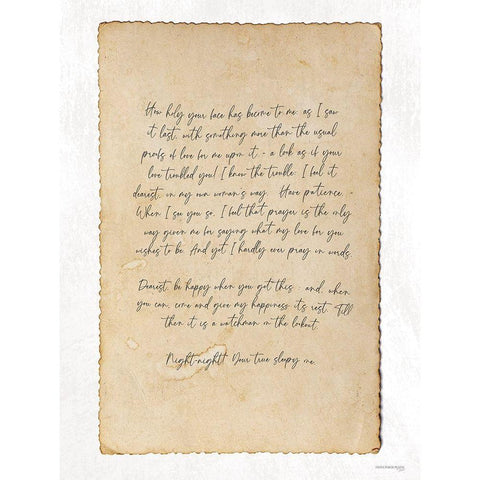 How holy your face has become to me: as I saw
it last, with something more than the usual
proofs of love for me upon it - a look as if your
love troubled you! I know the trouble: I feel it
dearest, in my own woman's way. Have patience. -
When I see you so, I feel that prayer is the only
way given me for saying what my love for you
wishes to be. And yet I hardly ever pray in words.
Dearest, be happy when you get this - and, when
you can, come and give my happiness its rest. Till
then it is a watchman on the lookout.
Night-night! Your true sleepy me.